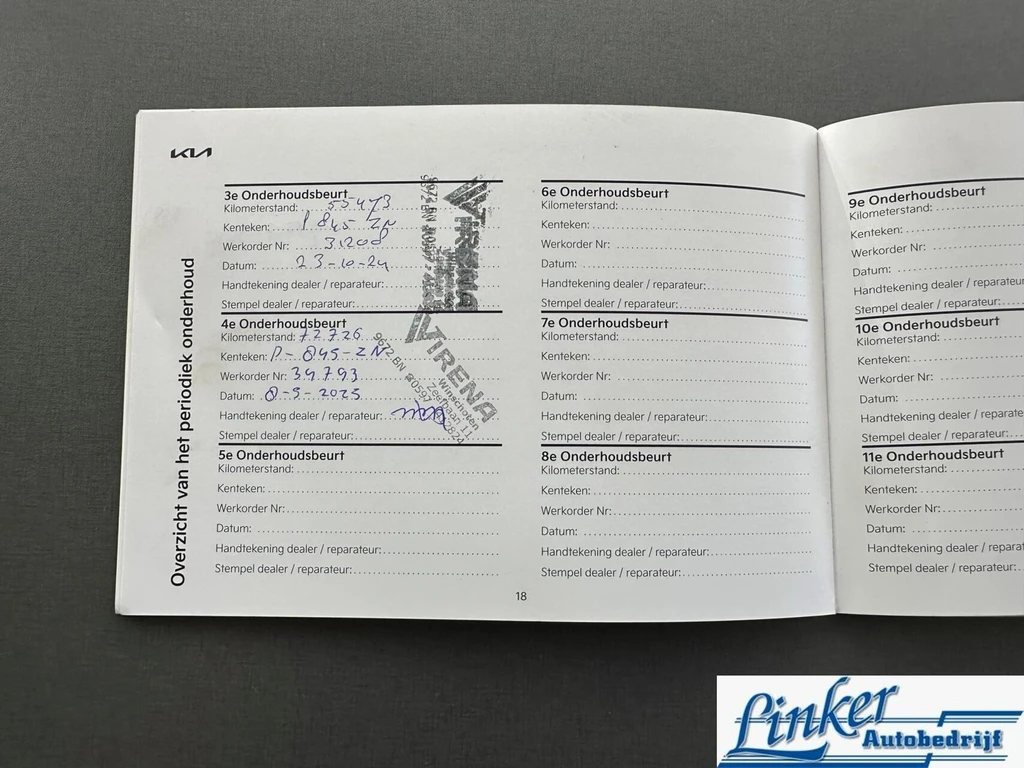 KIA
Overzicht van het periodiek onderhoud
3e Onderhoudsbeurt
Kilometerstand: 55473
Kenteken: P845 ZN
Werkorder Nr: 31208
Datum: 23-10-24
Handtekening dealer / reparateur:
Stempel dealer / reparateur:
VIRENA
4e Onderhoudsbeurt
Kilometerstand: 72726
Kenteken: P-845-ZN
Werkorder Nr: 34793
Datum: 8-9-2025
Handtekening dealer / reparateur:
Stempel dealer / reparateur:
VIRENA
Winschoten
9672 BN
5e Onderhoudsbeurt
Kilometerstand:
Kenteken:
Werkorder Nr:
Datum:
Handtekening dealer / reparateur:
Stempel dealer / reparateur:
6e Onderhoudsbeurt
Kilometerstand:
Kenteken:
Werkorder Nr:
Datum:
Handtekening dealer / reparateur:
Stempel dealer / reparateur:
7e Onderhoudsbeurt
Kilometerstand:
Kenteken:
Werkorder Nr:
Datum:
Handtekening dealer / reparateur:
Stempel dealer / reparateur:
8e Onderhoudsbeurt
Kilometerstand:
Kenteken:
Werkorder Nr:
Datum:
Handtekening dealer / reparateur:
Stempel dealer / reparateur:
18
9e Onderhoudsbeurt
Kilometerstand:
Kenteken:
Werkorder Nr:
Datum:
Handtekening dealer / reparateur
Stempel dealer / reparateur:
10e Onderhoudsbeurt
Kilometerstand:
Kenteken:
Werkorder Nr:
Datum:
Handtekening dealer / reparate
Stempel dealer / reparateur:
11e Onderhoudsbeurt
Kilometerstand:
Kenteken:
Werkorder Nr:
Datum:
Handtekening dealer / reparat
Stempel dealer / reparateur:
Linker
Autobedrijf